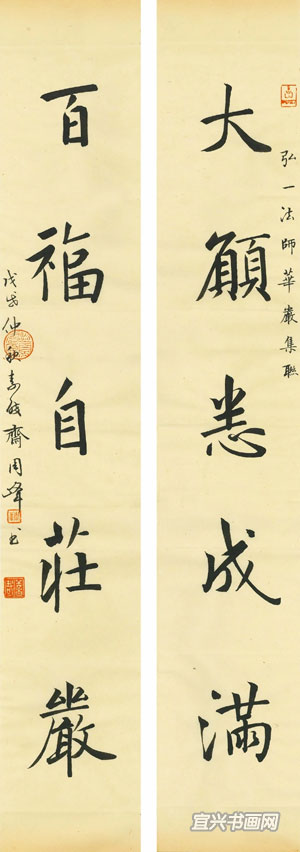 弘一法師華嚴集聯
大願悉成滿
百福自莊嚴
戊戌仲秋素履齋周峰書
宜兴书画网